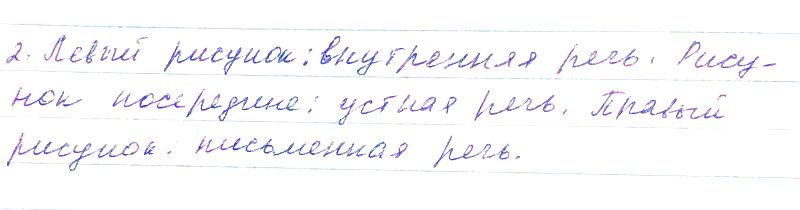 2. Левый рисунок: внутренняя речь. Рису-
нок посередине: устная речь. Правый
рисунок: письменная речь.